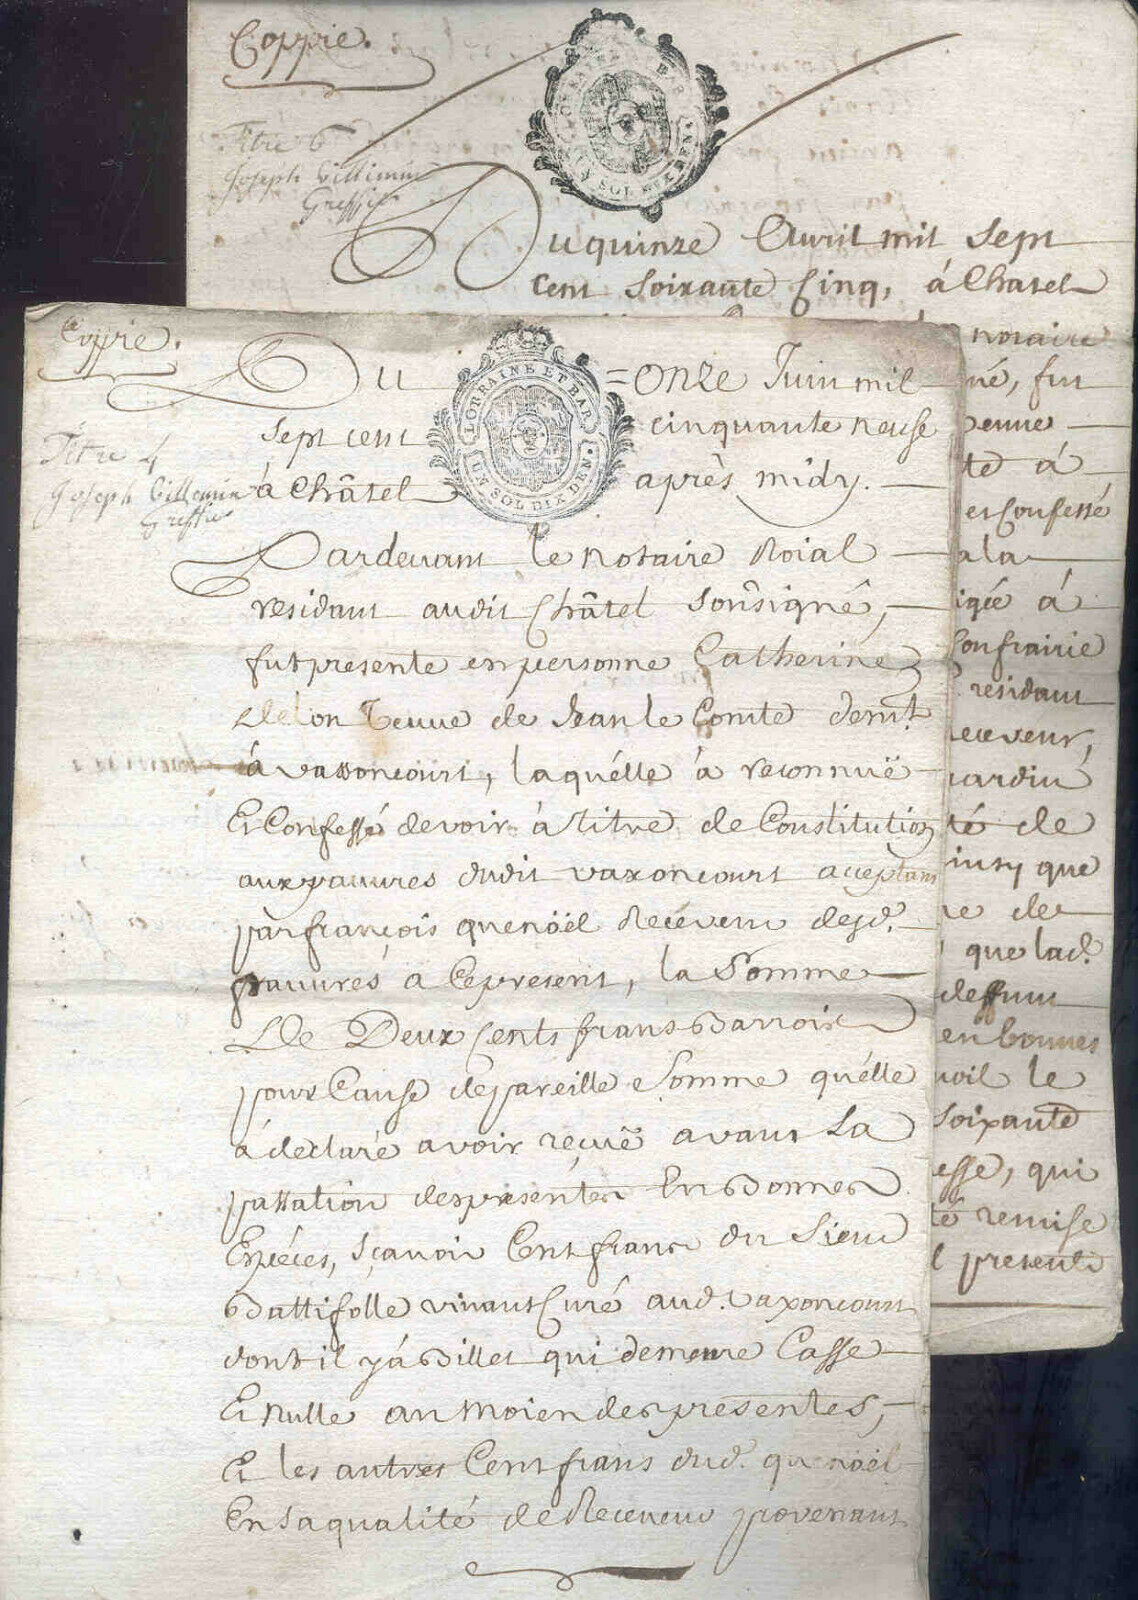 Coppie.
LORRAINE ET BAR
UN SOL SIX DEN.
Titre 6
Joseph Villemin
Greffier
Du quinze Avril mil sept
cent soixante Cinq, à Chatel
notaire
né, fut
à
et Confessé
ala
igée à
Confrairie
residant
receveur,
té de
que
de
que lad.
deffunt
en bonnes
le
soixante
esse, qui
té remise
l presente
Coppie.
LORRAINE ET BAR
UN SOL DIX DEN.
Titre 4
Joseph Villemin
Greffier
Du = onze Juin mil
sept cent cinquante neufe
à Châtel après midy.
Pardevant le notaire Roial
residant audit Châtel sousigné,
fut presente en personne Catherine
Delon veuve de Jean le Comte demt.
à vaxoncourt, laquélle à reconnuë
Et Confessé devoir à titre de Constitution
aux pauvres dudit vaxoncourt acceptant
par françois quenöel Receveur desd.
pauvres a Ce present, la Somme
De Deux Cents frans Barrois
pour Cause de pareille Somme quélle
à declaré avoir reçuë avant La
passation des presentes En Bonnes
Espéces, sçavoir Cent frans du Sieur
Battifolle vivant Curé aud. vaxoncourt
dont il y à Billet qui demeure Casse
Et Nulle au moien des presentes,
Et les autres Cent frans dud. quenöel
En Sa qualité de Receveur provenant